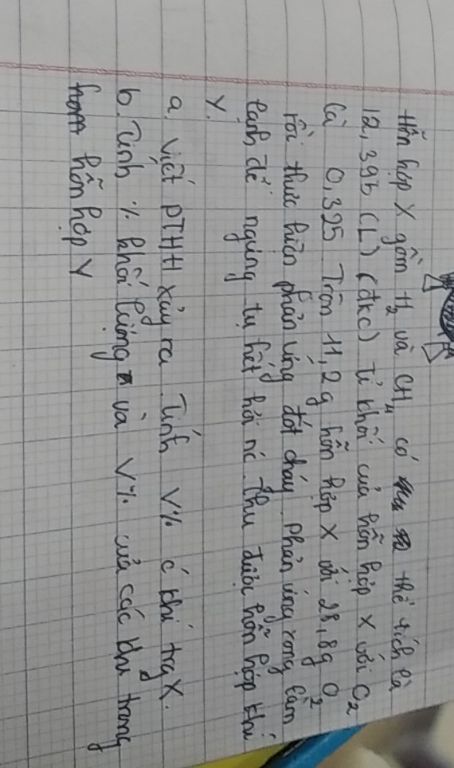 Hỗn hợp X gồm H2 và CH4 có thể tích là
12,395 (L) (đkc) Tỉ khối của hỗn hợp X với O2
là 0,325 Trộn 11,2g hỗn hợp X với 28,8g O2
rồi thực hiện phản ứng đốt cháy. Phản ứng xong làm
lạnh để ngưng tụ hết hơi nc thu được hỗn hợp khí
Y.
a. Viết PTHH xảy ra. Tính V% c khí trg X.
b. Tính % khối lượng và V% của các khí trong
hỗn hợp Y